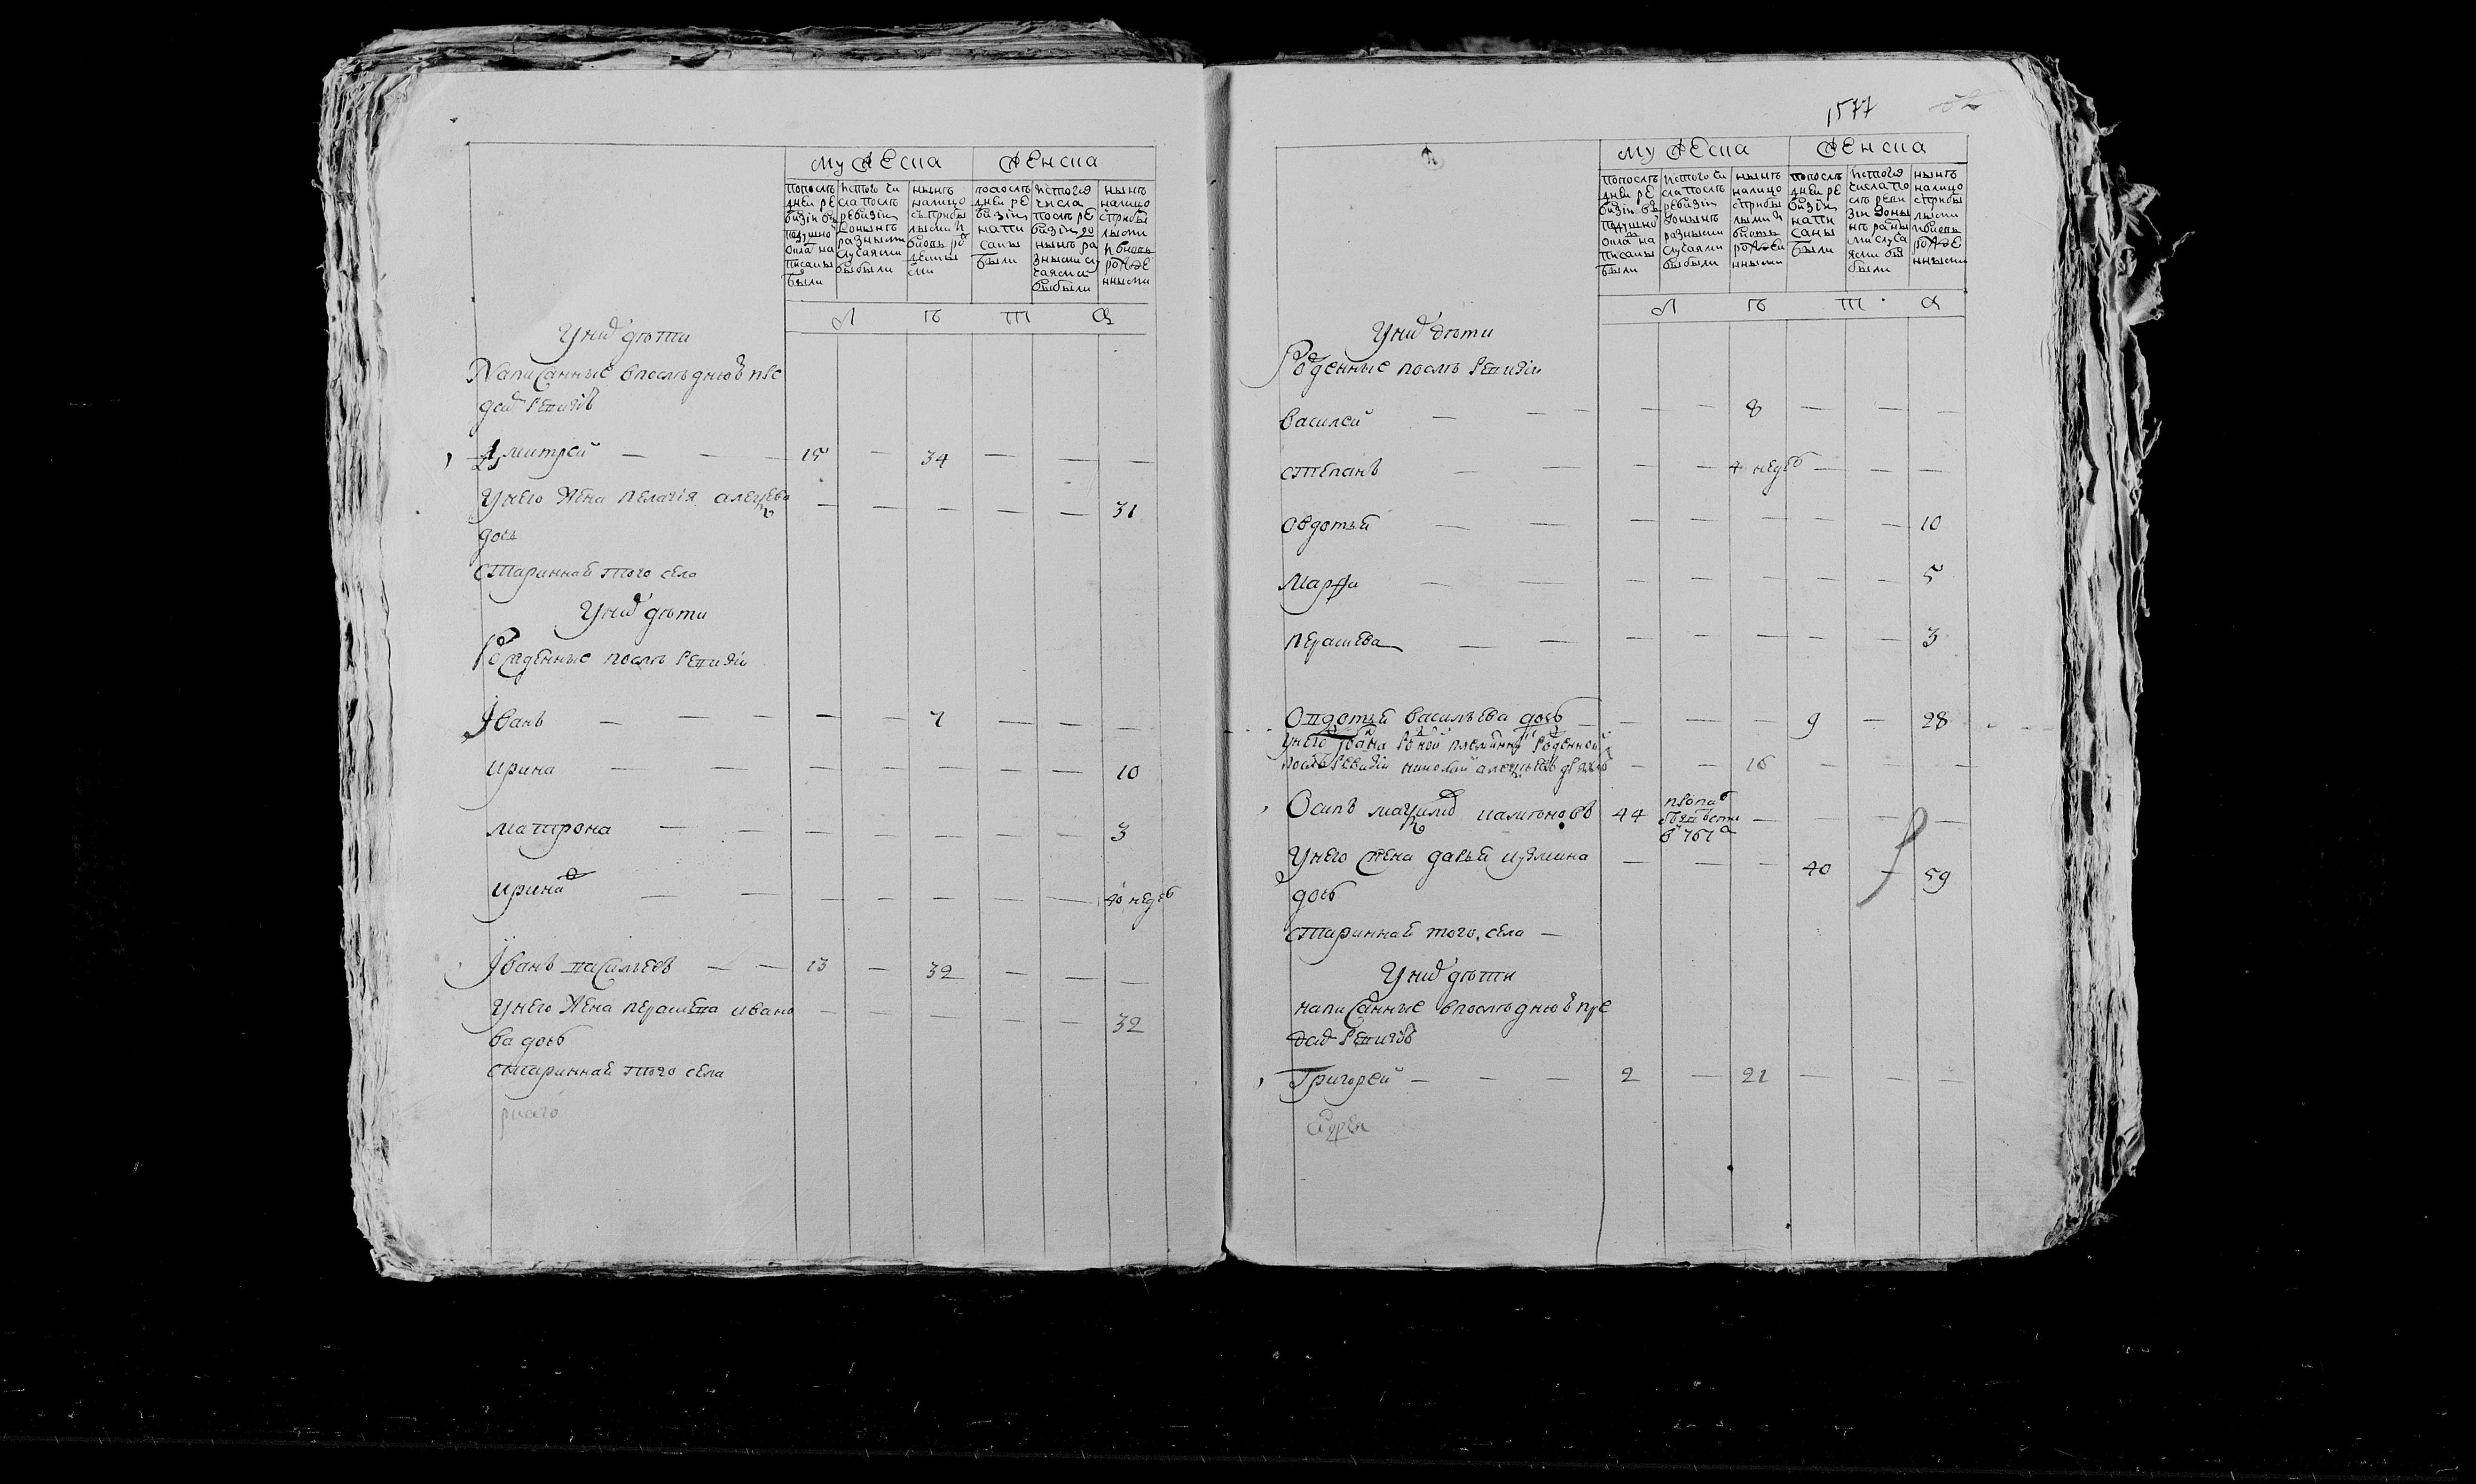 мужеска женска
попослѣ
дней ре
визіи въ
подушной
окла на
писаны
были
истого чи
сла послѣ
ревизіи
донынѣ
разными
случаями
выбыли
нынѣ
налицо
съ прибы
лыми и
вновь ро
попослѣ
дней ре
визіи
напи
саны
были
истого
числа
послѣ ре
визіи до
нынѣ ра
зными слу
чаями
выбыли
нынѣ
налицо
сприбы
лыми
и вновь
рожде
нными
л ѣ т а
У них дѣти
Написанные впослѣднюю пре
дъ ревизию
Дмитрей — 15 — 34 — — —
Унего жена пелагія алексеева — — — — — 31
дочь
старинная того села
У них дѣти
Рожденные послѣ ревизіи
Іванъ — — 7 — — —
ирина — — — — — 10
матрона — — — — — 3
ирина — — — — — 40 недел
Іванъ васильевъ — 13 — 32 — — —
Унего жена парасковья ивано — — — — — 32
ва дочь
старинная того села
1577
мужеска женска
попослѣ
дней ре
визіи въ
подушной
окла на
писаны
были
истого чи
сла послѣ
ревизіи
донынѣ
разными
случаями
выбыли
нынѣ
налицо
сприбы
лыми и
вновь
рожде
нными
попослѣ
дней ре
визіи
напи
саны
были
истого
числа по
слѣ реви
зіи доны
нѣ разны
ми случа
ями вы
были
нынѣ
налицо
сприбы
лыми
ивновь
рожде
нными
л ѣ т а
У них дѣти
Рожденные послѣ ревизіи
василей — — 8 — — —
степанъ — — 4 недел — — —
овдотья — — — — — 10
марфа — — — — — 5
— — — — — 3
Овдотья васильева дочь — — — 9 — 28
унего Івана родной племянник рожденной
послѣ ревизіи николай алексѣевъ — — 16 — — —
Осипъ максимов 44 — — — —
в 767
Унего жена дарья кузмина — — — 40 — 59
дочь
старинная того села —
У них дѣти
написанные впослѣднюю пре
дъ ревизию
Григорей — 2 — 21 — — —